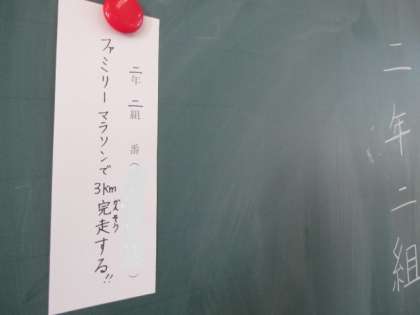 二年二組
二年 二組 番( )
ファミリーマラソンで
3km完走する!!
かんそう